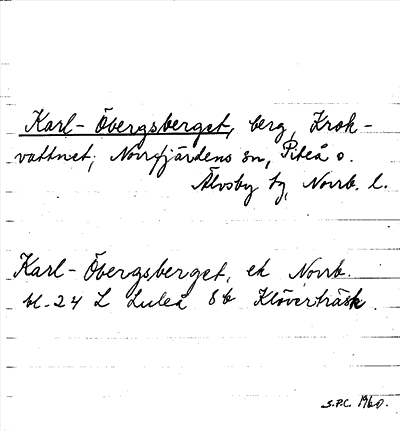 Karl-Öbergsberget, berg, Krok-
vattnet; Norrfjärdens sn, Piteå o.
Älvsby tg, Norrb. l.
Karl-Öbergsberget, ek Norrb.
bl. 24 L Luleå 8b Klöverträsk.
S.P.C. 1960.